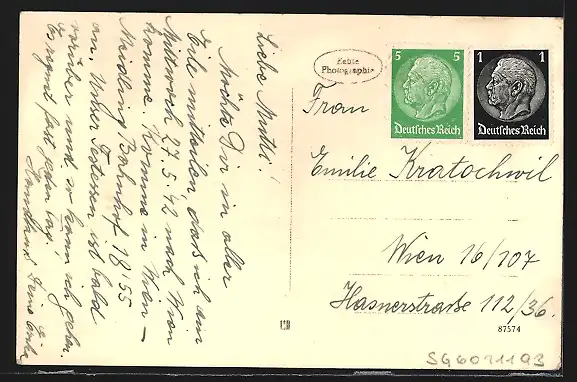 Liebe Mutti!
Möchte Dir in aller
Eile mitteilen, daß ich am
Mittwoch 27.5.42 nach Wien
komme. Komme in Wien –
Meidling Bahnhof 18 55
an. Unser ist bald
vorüber und so kann ich gehen.
Es regnet fast jeden Tag.
Deine
Echte
Photographie
5 5
Deutsches Reich
1 1
Deutsches Reich
Frau
Emilie Kratochwil
Wien 16/107
Hasnerstraße 112/36.
87574
SG6071193